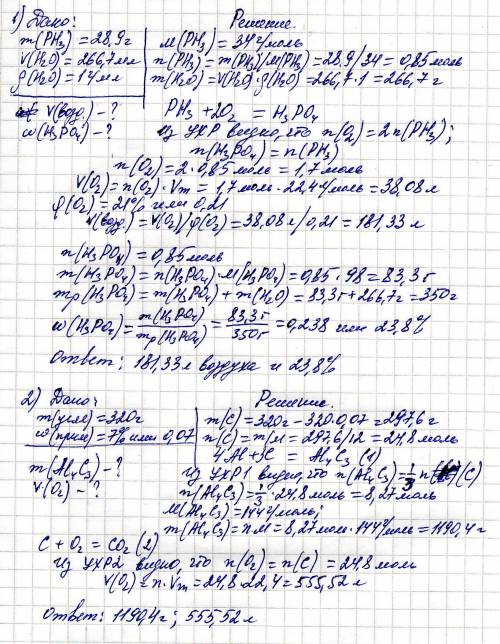 1) Дано:
m(PH₃)=28,9г
V(H₂O)=266,7мл
ρ(H₂O)=1г/мл
V(возд.)-?
ω(H₃PO₄)-?
Решение.
M(PH₃)=34г/моль
n(PH₃)=m(PH₃)/M(PH₃)=28,9/34=0,85моль
m(H₂O)=V(H₂O)·ρ(H₂O)=266,7·1=266,7г
PH₃+2O₂=H₃PO₄
из УХР видно, что n(O₂)=2n(PH₃);
n(H₃PO₄)=n(PH₃)
n(O₂)=2·0,85моль=1,7моль
V(O₂)=n(O₂)·Vm=1,7моль·22,4л/моль=38,08л
φ(O₂)=21% или 0,21
V(возд.)=V(O₂)/φ(O₂)=38,08л/0,21=181,33л
n(H₃PO₄)=0,85моль
m(H₃PO₄)=n(H₃PO₄)·M(H₃PO₄)=0,85·98=83,3г
mр(H₃PO₄)=m(H₃PO₄)+m(H₂O)=83,3г+266,7г=350г
ω(H₃PO₄)=m(H₃PO₄)/mр(H₃PO₄)=83,3г/350г=0,238 или 23,8%
Ответ: 181,33л воздуха и 23,8%
2) Дано:
m(угля)=320г
ω(прим)=7% или 0,07
m(Al₄C₃)-?
V(O₂)-?
Решение.
m(C)=320г-320·0,07=297,6г
n(C)=m/M=297,6/12=24,8моль
4Al+3C=Al₄C₃ (1)
Из УХР1 видно, что n(Al₄C₃)=1/3n(C)
n(Al₄C₃)=1/3·24,8моль=8,27моль
M(Al₄C₃)=144г/моль;
m(Al₄C₃)=nM=8,27моль·144г/моль=1190,4г
C+O₂=CO₂ (2)
Из УХР2 видно, что n(O₂)=n(C)=24,8моль
V(O₂)=n·Vm=24,8·22,4=555,52л
Ответ: 1190,4г; 555,52л